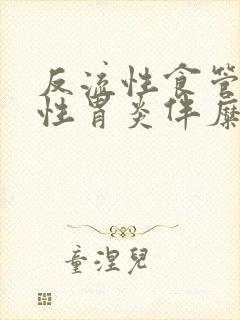 反流性食管
性胃炎伴糜
童涅儿